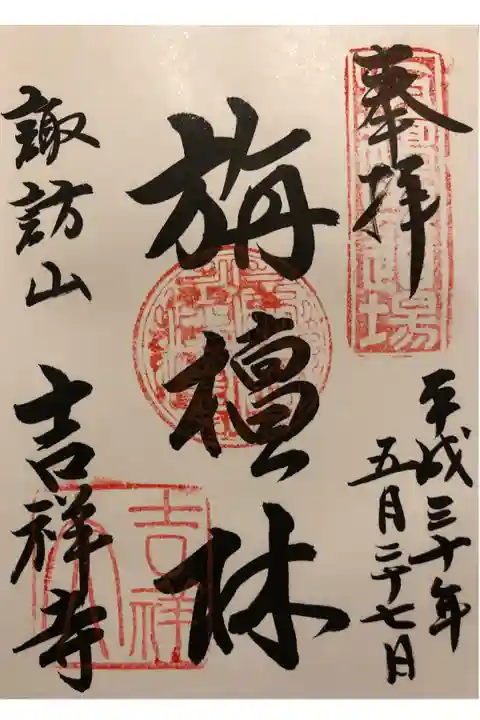 奉拝
平成三十年
五月二十七日
旃檀林
諏訪山 吉祥寺
吉祥